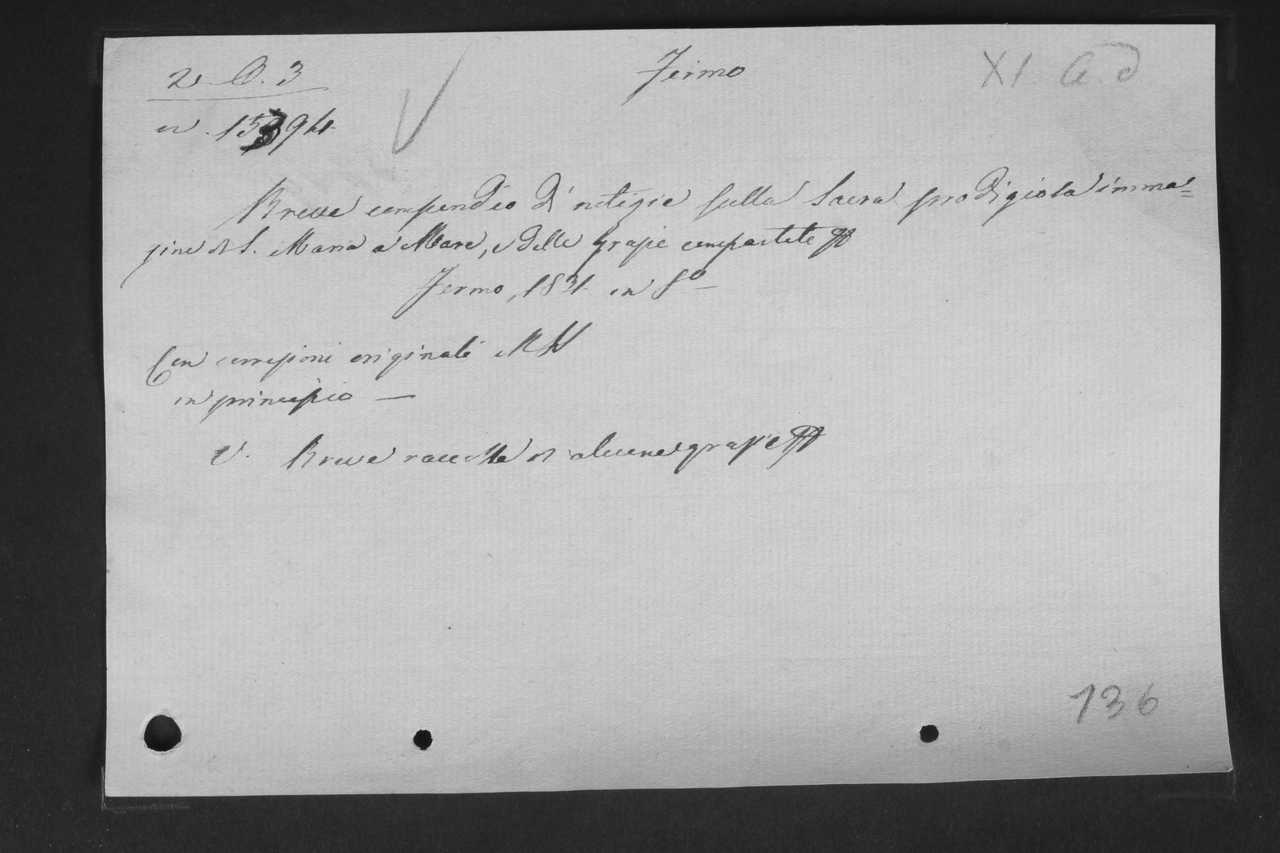 2 O. 3
Fermo
XI. a. d
n. 15394.
Breve compendio di notizie sulla Sacra prodigiosa imma=
gine di S. Maria a Mare, e delle grazie compartite
Fermo, 1831. in 8º
Con correzioni originali MSS
in principio —
V. Breve raccolta di alcune grazie
136